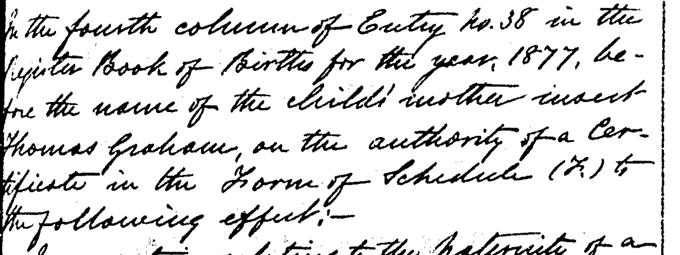 In the fourth column of Entry No. 38 in the
Register Book of Births for the year, 1877, be-
fore the name of the child's mother insert
Thomas Graham, on the authority of a Cer-
tificate in the Form of Schedule (F.) to
the following effect:—
relating to the Paternity of a